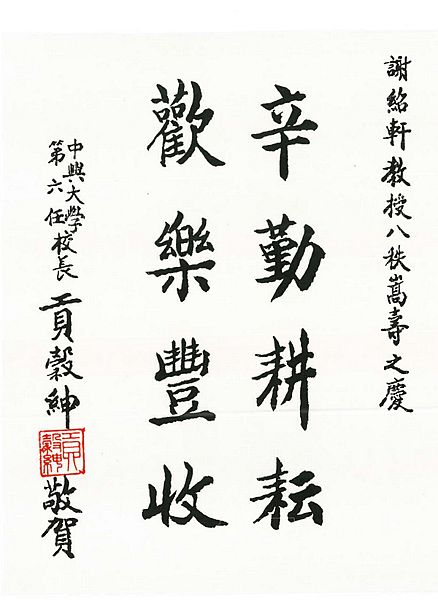 謝紹軒教授八秩嵩壽之慶
辛勤耕耘
歡樂豐收
中興大學
第六任校長
貢穀紳
敬賀
貢穀紳